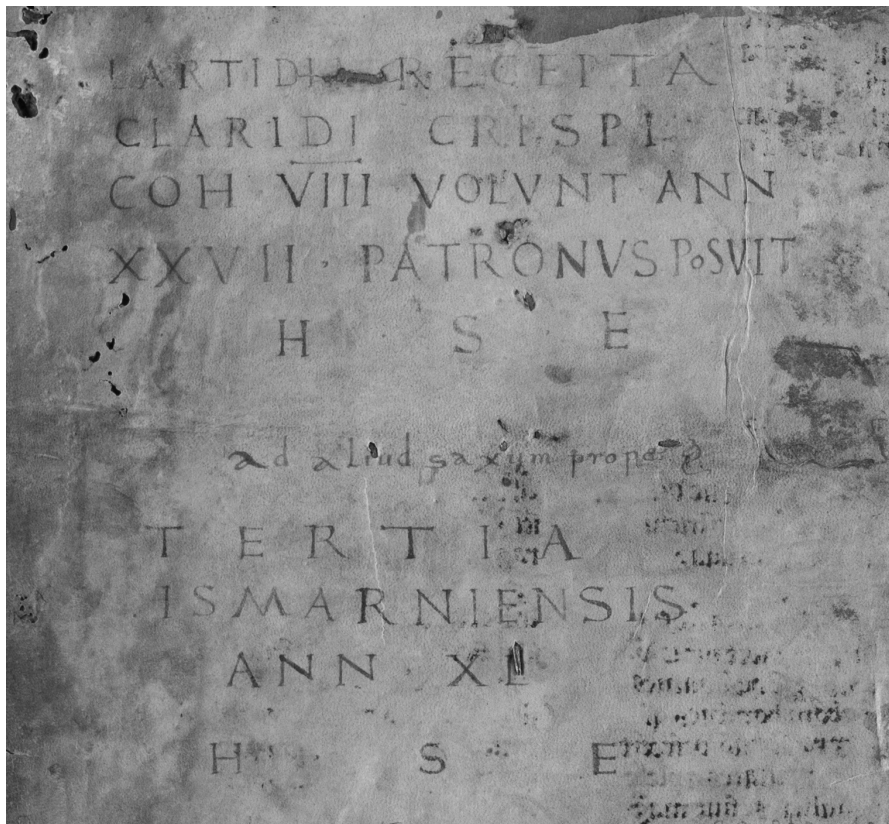 LARTIDIA RECEPTA
CLARIDI CRISPI
COH VIII VOLVNT ANN
XXVII · PATRONVS POSVIT
H S E
ad aliud saxum prope
TERTIA
ISMARNIENSIS
ANN XL
H S E